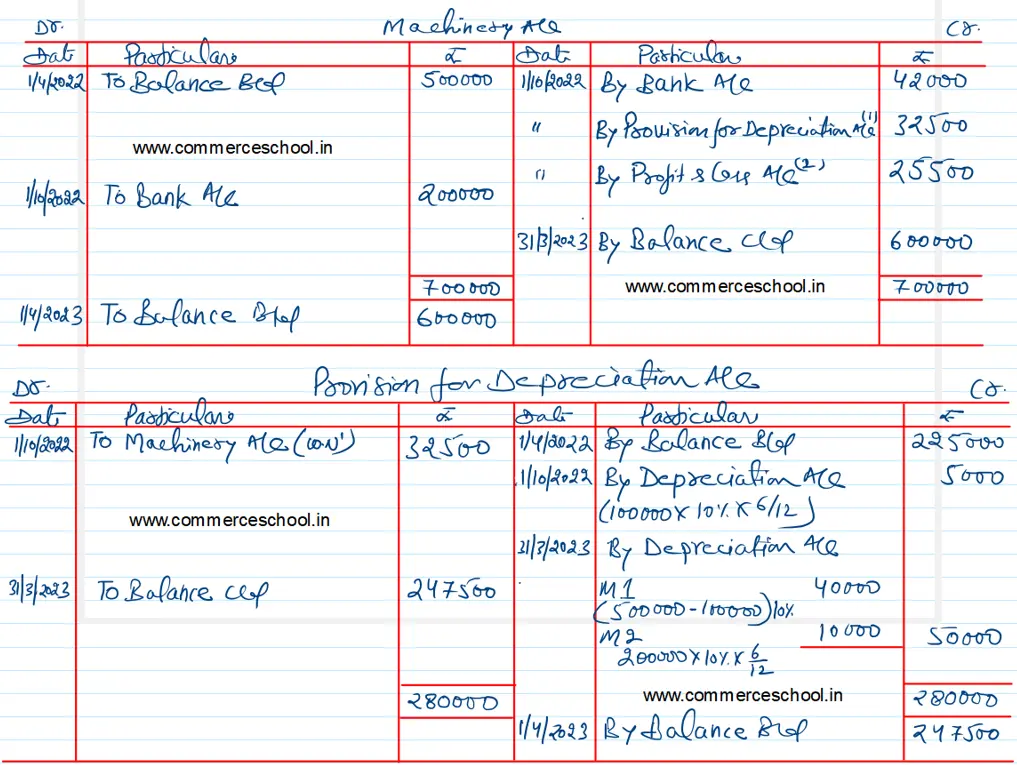 Dr. Machinery A/c Cr.
Date Particulars ₹ Date Particulars ₹
1/4/2022 To Balance B/d 500000 1/10/2022 By Bank A/c 42000
" By Provision for Depreciation A/c (1) 32500
www.commerceschool.in
" By Profit & Loss A/c (2) 25500
1/10/2022 To Bank A/c 200000
31/3/2023 By Balance C/d 600000
700000 www.commerceschool.in 700000
1/4/2023 To Balance B/d 600000
Dr. Provision for Depreciation A/c Cr.
Date Particulars ₹ Date Particulars ₹
1/10/2022 To Machinery A/c 32500 1/4/2022 By Balance B/d 225000
1/10/2022 By Depreciation A/c 5000
www.commerceschool.in (100000 X 10% X 6/12)
31/3/2023 By Depreciation A/c
31/3/2023 To Balance C/d 247500 M1 40000
(500000 - 100000) 10%
M2 10000 50000
200000 X 10% X 6/12
280000 www.commerceschool.in 280000
1/4/2023 By Balance B/d 247500